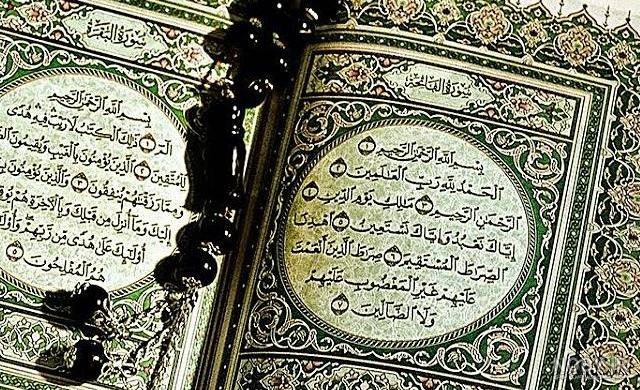 سُورَةُ الفَاتِحَة
بِسْمِ اللَّهِ الرَّحْمَٰنِ الرَّحِيمِ ١
الْحَمْدُ لِلَّهِ رَبِّ الْعَٰلَمِينَ ٢
الرَّحْمَٰنِ الرَّحِيمِ ٣ مَٰلِكِ يَوْمِ الدِّينِ ٤
إِيَّاكَ نَعْبُدُ وَإِيَّاكَ نَسْتَعِينُ ٥ اهْدِنَا
الصِّرَٰطَ الْمُسْتَقِيمَ ٦ صِرَٰطَ الَّذِينَ أَنْعَمْتَ
عَلَيْهِمْ غَيْرِ الْمَغْضُوبِ عَلَيْهِمْ
وَلَا الضَّالِّينَ ٧
سُورَةُ البَقَرَة
بِسْمِ اللَّهِ الرَّحْمَٰنِ الرَّحِيمِ
الٓمٓ ١ ذَٰلِكَ الْكِتَٰبُ لَا رَيْبَ فِيهِ هُدًى
لِلْمُتَّقِينَ ٢ الَّذِينَ يُؤْمِنُونَ بِالْغَيْبِ وَيُقِيمُونَ
وَمِمَّا رَزَقْنَٰهُمْ يُنْفِقُونَ ٣ وَالَّذِينَ يُؤْمِنُونَ
إِلَيْكَ وَمَا أُنْزِلَ مِنْ قَبْلِكَ وَبِالْآخِرَةِ هُمْ
أُولَٰئِكَ عَلَىٰ هُدًى مِنْ رَبِّهِمْ وَأُولَٰئِكَ
هُمُ الْمُفْلِحُونَ ٥